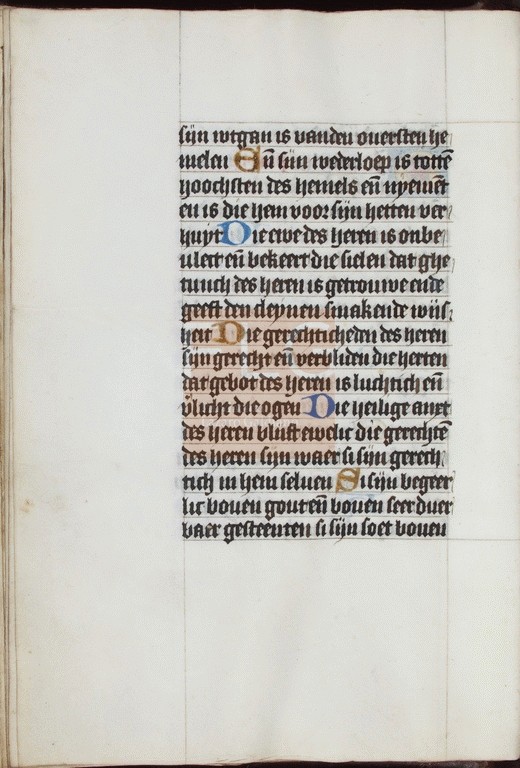 sijn wtgan is vanden ouersten he
melen Eñ sijn wederloep is tottē
hoochsten des hemels eñ nyemēt
en is die hem voor sijn hetten ver
huyt Die ewe des heren is onbe
ulect eñ bekeert die sielen dat ghe
tuuch des heren is getrouwe ende
geeft den cleynen smakende wijs
heit Die gerechticheden des heren
sijn gerecht eñ verbliden die herten
dat gebot des heren is luchtich eñ
v̄licht die ogen Die heilige anxt
des heren blijft ewelic die gerechtē
des heren sijn waer si sijn gerech
tich in hem seluen Si sijn begeer
lic bouen gout eñ bouen seer duer
baer gesteenten si sijn soet bouen